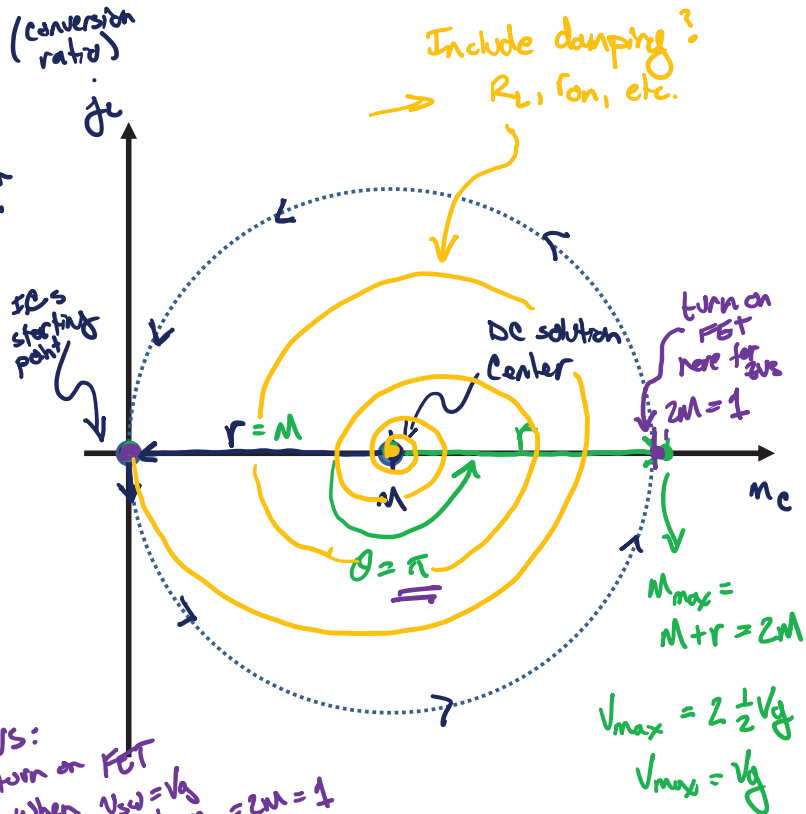 (conversion
ratio)
Include damping?
R_L, r_on, etc.
j_L
IC's
starting
point
DC solution
Center
turn on
FET
here for
ZVS
2M = 1
r = M
r
M
m_c
θ = π
M_max =
M+r = 2M
V_max = 2 1/2 V_g
V_max = V_g
VS:
turn on FET
when V_sw = V_g
= 2M = 1